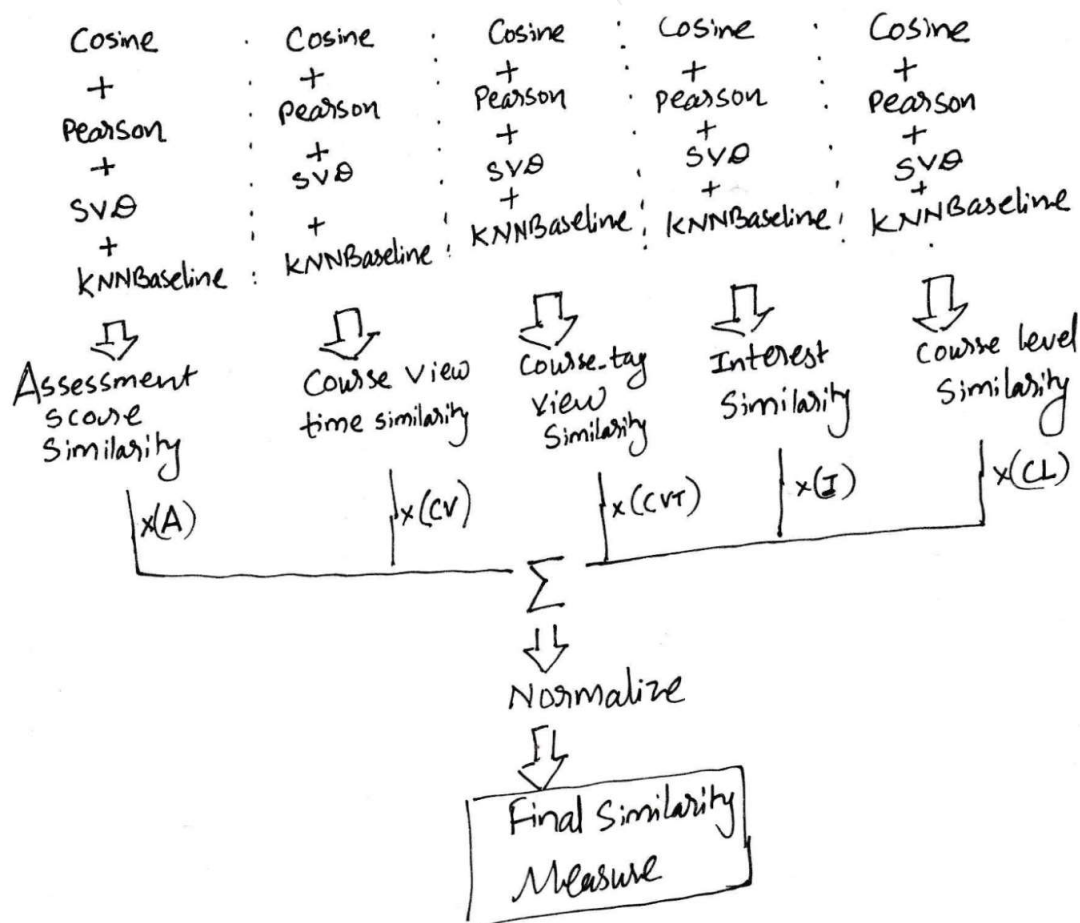 Cosine
+
Pearson
+
SVD
+
KNNBaseline
Cosine
+
Pearson
+
SVD
+
KNNBaseline
Cosine
+
Pearson
+
SVD
+
KNNBaseline
Cosine
+
Pearson
+
SVD
+
KNNBaseline
Cosine
+
Pearson
+
SVD
+
KNNBaseline
Assessment
score
Similarity
Course view
time similarity
Course-tag
view
Similarity
Interest
Similarity
Course level
Similarity
x(A)
x(CV)
x(CVT)
x(I)
x(CL)
Σ
Normalize
Final Similarity
Measure